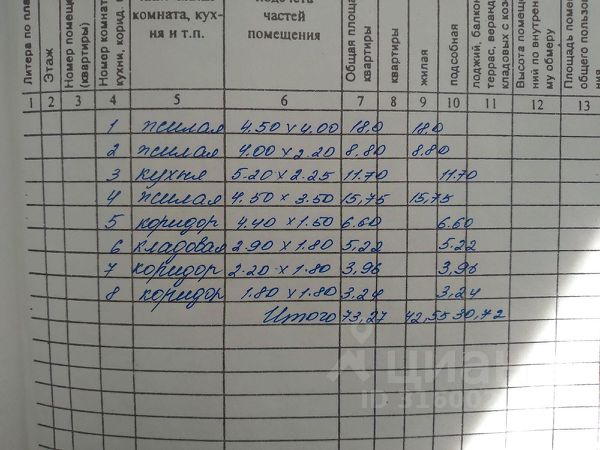 Литера по пла
Этаж
Номер помещ
(квартиры)
Номер комнат
кухни, корид
комната, кух-
ня и т.п.
подсчета
частей
помещения
Общая площа
квартиры
квартиры
жилая
подсобная
лоджий, балкон
террас, веранд
кладовых с коэ
Высота помещ
ний по внутрен
му обмеру
Площадь поме
общего пользо
ния
1 2 3 4 5 6 7 8 9 10 11 12 13
1 жилая 4.50 x 4.00 18.0 18.0
2 жилая 4.00 x 2.20 8.80 8.80
3 кухня 5.20 x 2.25 11.70 11.70
4 жилая 4.50 x 3.50 15,75 15,75
5 коридор 4.40 x 1.50 6.60 6.60
6 кладовая 2.90 x 1.80 5,22 5.22
7 коридор 2.20 x 1.80 3,96 3,96
8 коридор 1.80 x 1.80 3,24 3,24
Итого 73,27 42,55 30,72
циан
ID 316002